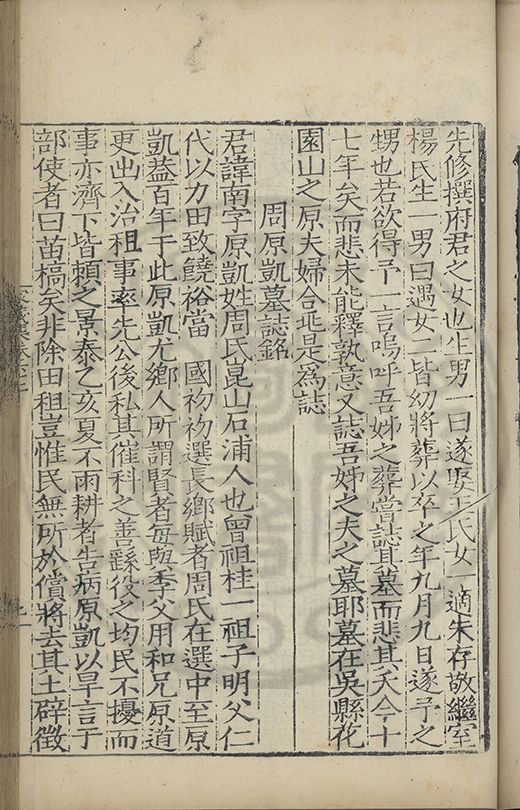 先修撰府君之女也生男一曰遂娶王氏女一適朱存敬繼室
楊氏生一男曰遇女二皆幼將葬以卒之年九月九日遂予之
甥也若欲得予一言嗚呼吾姊之葬嘗誌其墓而悲其夭今十
七年矣而悲未能釋孰意又誌吾姊之夫之墓耶墓在吳縣花
園山之原夫婦合兆是為誌
周原凱墓誌銘
君諱南字原凱姓周氏崑山石浦人也曾祖桂一祖子明父仁
代以力田致饒裕當 國初初選長鄉賦者周氏在選中至原
凱葢百年于此原凱尤鄉人所謂賢者每與季父用和兄原道
更出入治租事率先公後私其催科之善繇役之均民不擾而
事亦濟下皆賴之景泰乙亥夏不雨耕者告病原凱以旱言于
部使者曰苗槁矣非除田租豈惟民無所於償將去其土辟徵